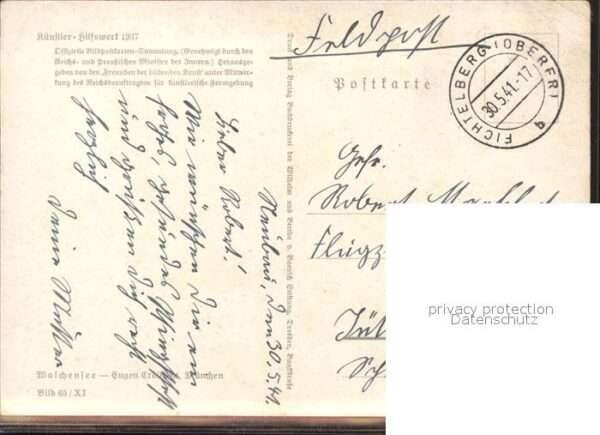 Künstler-Hilfswerk 1937
Offizielle Bildpostkarten-Sammlung. (Genehmigt durch den
Reichs- und Preußischen Minister des Innern.) Herausge-
geben von den „Freunden der bildenden Kunst" unter Mitwir-
kung des Reichsbeauftragten für künstlerische Formgebung
Feldpost
Postkarte
FICHTELBERG (OBERFR)
30.5.41.-17
q
Druck und Verlag Buchdruckerei der Wilhelm und Bertha v. Baensch Stiftung, Dresden,
Neubau, den 30.5.41.
Lieber Robert!
Wir wünschen Dir ein
und grüßen Dich recht
herzlich
Deine Mutter
Gefr.
Robert
Flugz
Jüt
Sch
Walchensee — Eugen München
Bild 65/XI
privacy protection
Datenschutz